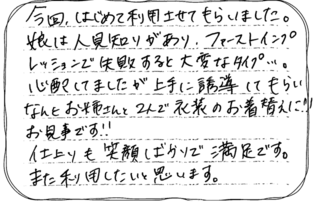 今回、はじめて利用させてもらいました。
娘は人見知りがあり、ファーストインプ
レッションで失敗すると大変なタイプ…。
心配してましたが上手に誘導してもらい
なんとお姉さんと2人で衣装のお着替えに!!
お見事です!!
仕上りも笑顔ばかりで満足です。
また利用したいと思います。